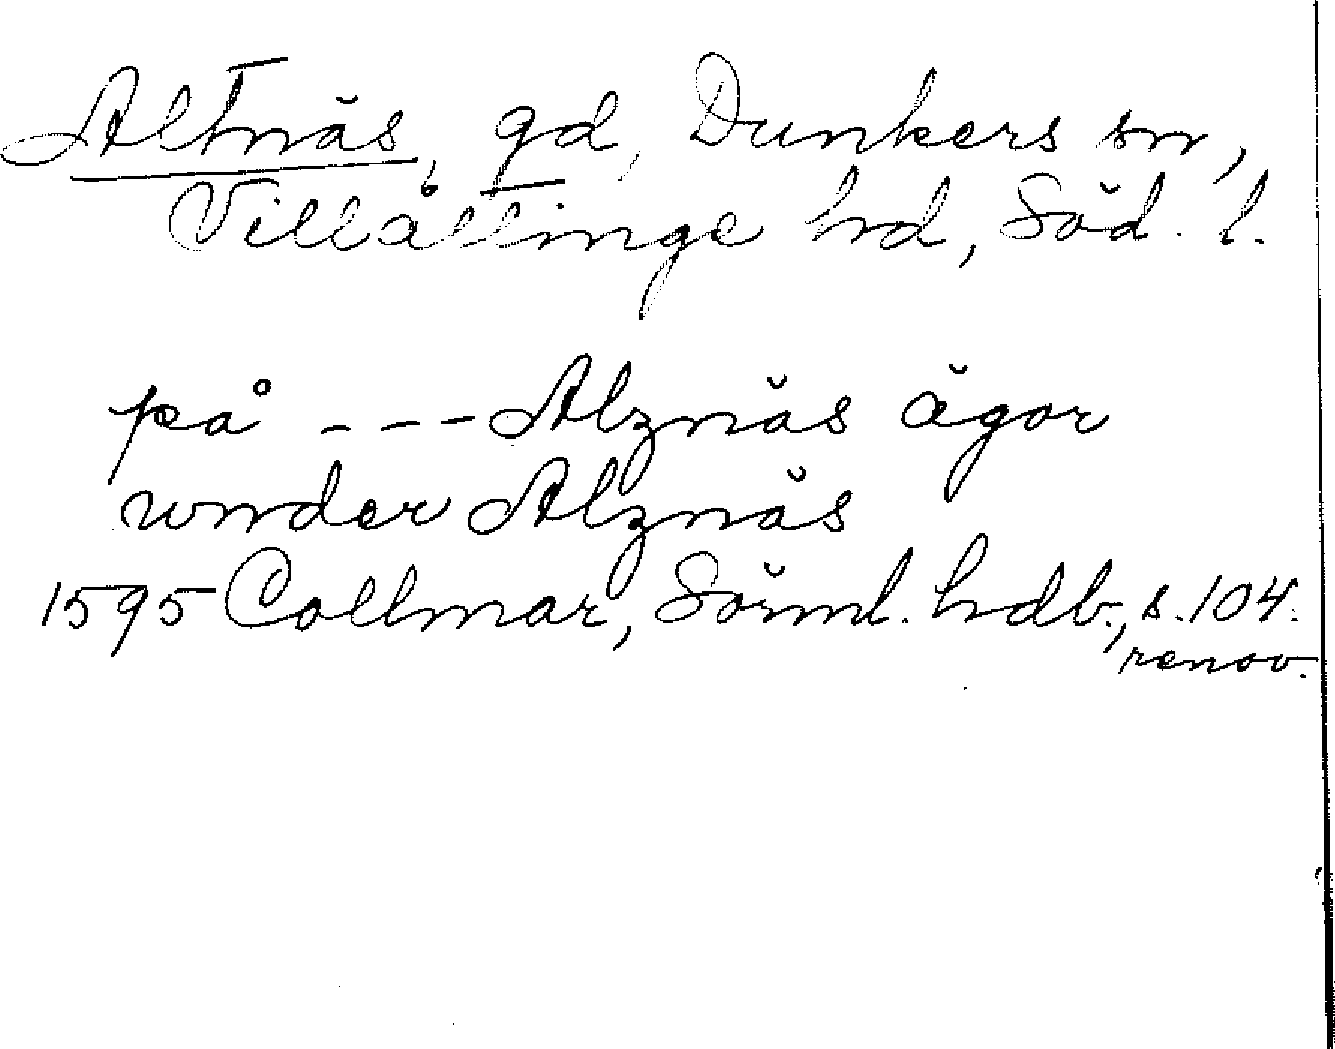 Altnäs, gd, Dunkers sn,
Villåttinge hd, Söd. l.
på --- Alznäs ägor
wnder Alznäs
1595 Collmar, Sörml. hdb., s. 104.
renov.